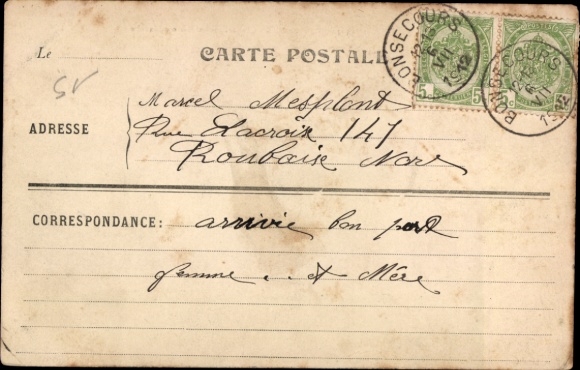 Le
CARTE POSTALE
BONSECOURS
VII
1912
BONSECOURS
VII
1912
5 5
5c
ADRESSE
Marcel Mesplont
Rue Lacroix 147
Roubaix Nord
CORRESPONDANCE: arrivée bon port
femme et Mère